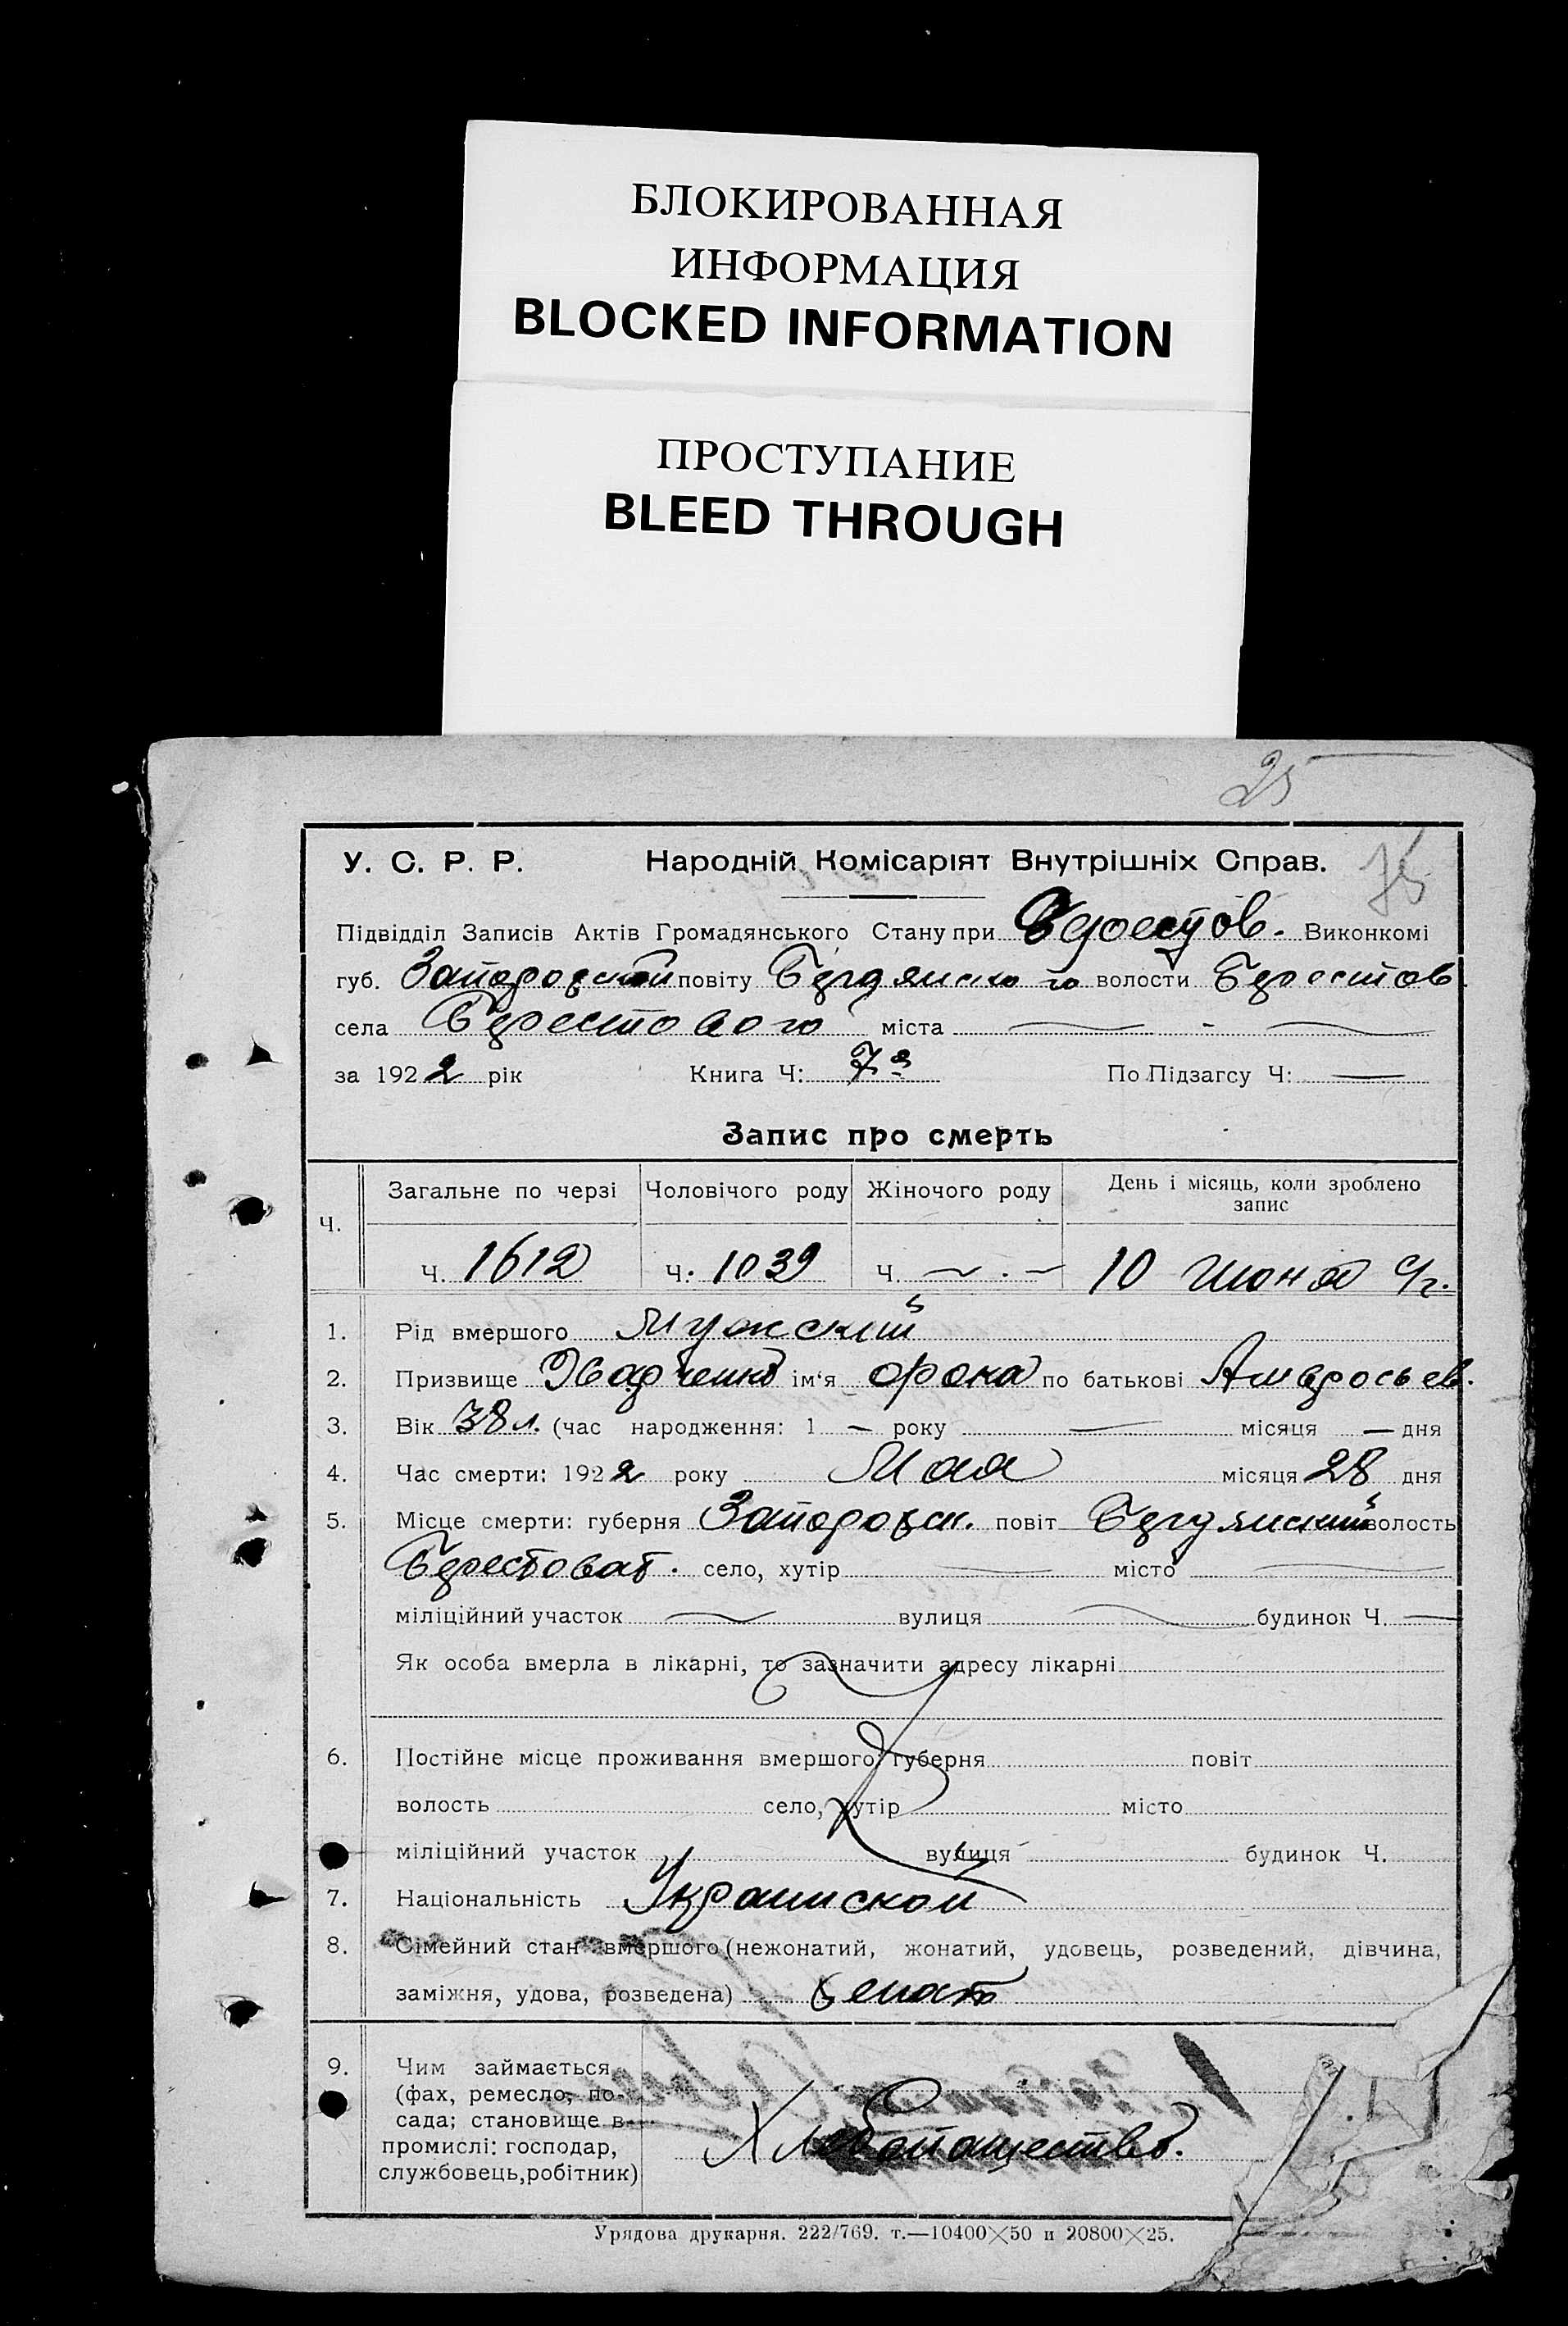 БЛОКИРОВАННАЯ
ИНФОРМАЦИЯ
BLOCKED INFORMATION
ПРОСТУПАНИЕ
BLEED THROUGH
25
75
У. С. Р. Р. Народній Комісаріят Внутрішніх Справ.
Підвідділ Записів Актів Громадянського Стану при Берестов. Виконкомі
губ. Запорожской повіту Бердянского волости Берестов.
села Берестового міста —
за 1922 рік Книга Ч: 7я По Підзагсу Ч: —
Запис про смерть
Ч. Загальне по черзі Чоловічого роду Жіночого роду День і місяць, коли зроблено запис
Ч. 1612 Ч. 1039 Ч. — 10 Июня с/г.
1. Рід вмершого Мужский
2. Призвище ім'я по батькові Амвросьев.
3. Вік 38 л. (час народження: 1 — року — місяця — дня
4. Час смерти: 1922 року Мая місяця 28 дня
5. Місце смерти: губерня Запорожск. повіт Бердянский волость
Берестоват. село, хутір — місто —
міліційний участок — вулиця — будинок Ч. —
Як особа вмерла в лікарні, то зазначити адресу лікарні
6. Постійне місце проживання вмершого: губерня повіт
волость село, хутір місто
міліційний участок вулиця будинок Ч.
7. Національність Украинской
8. Сімейний стан вмершого (нежонатий, жонатий, удовець, розведений, дівчина,
заміжня, удова, розведена) женат
9. Чим займається
(фах, ремесло, по-
сада; становище в
промислі: господар,
службовець, робітник)
Хлебопашество.
Урядова друкарня. 222/769. т.—10400×50 и 20800×25.